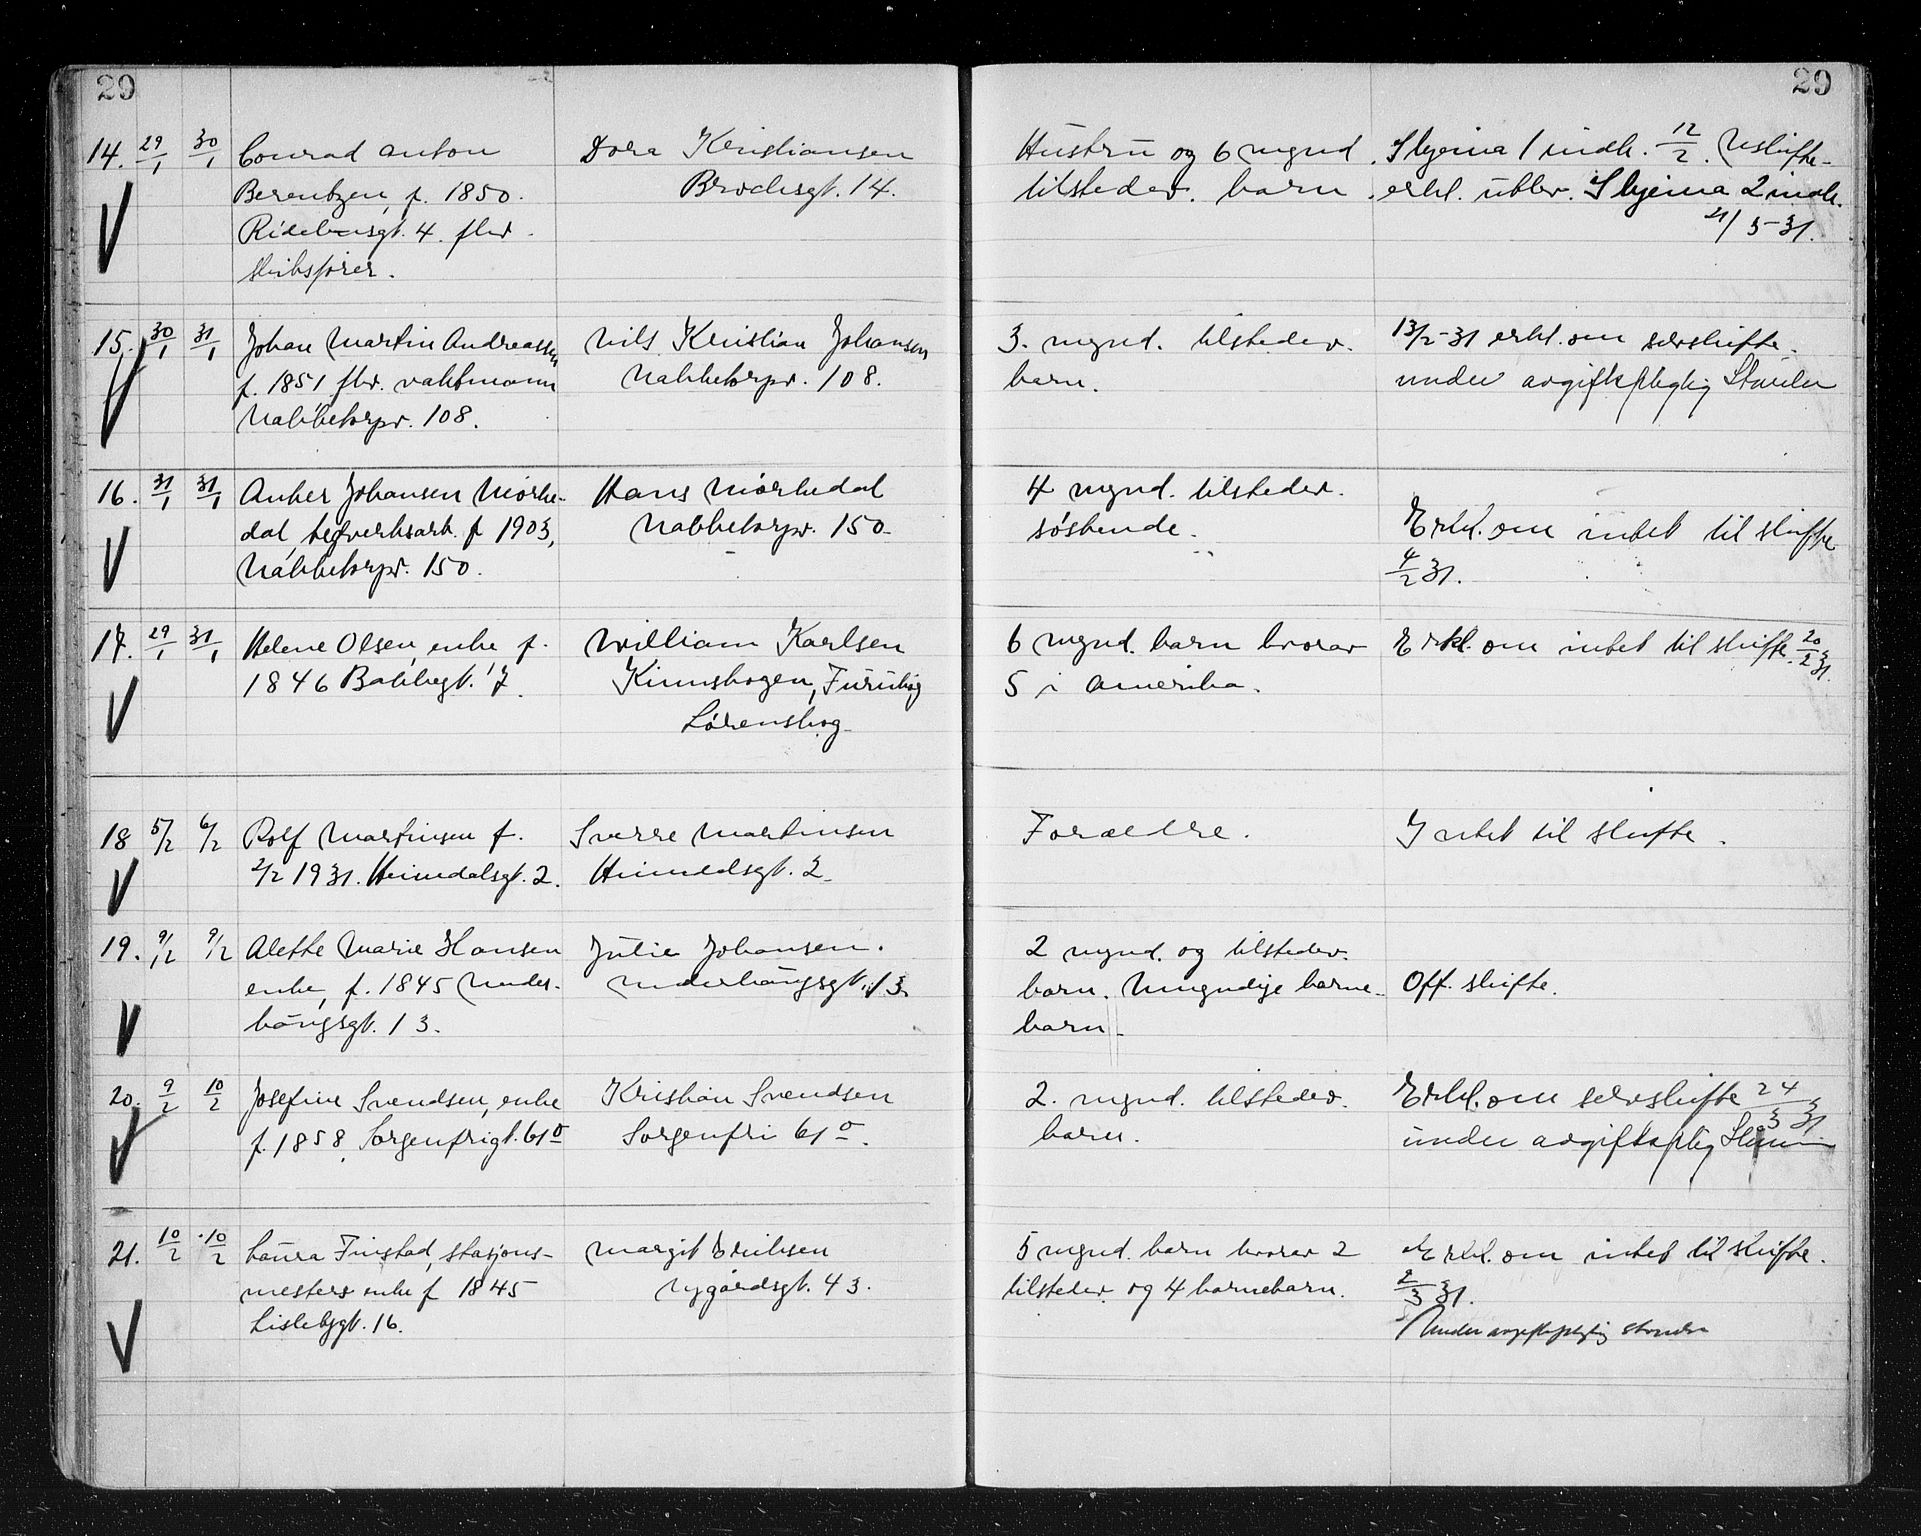 29
29
14. 29/1 30/1 Conrad Anton
Berentzen, f. 1850.
Ridehusgt. 4. fhv.
skibsfører.
Dora Kristiansen
Brochsgt. 14.
Hustru og 6 mynd.
tilstedev. barn.
Skjema 1 indk. 12/2. Uskifte-
erkl. utlev. Skjema 2 indk.
21/5-31.
15. 30/1 31/1 Johan Martin Andreassen
f. 1851 fhv. vaktmann
Nabbetorpv. 108.
Nils Kristian Johansen
Nabbetorpv. 108.
3. mynd. tilstedev.
barn.
13/2-31 erkl. om selvskifte.
under avgiftspligtig
16. 31/1 31/1 Anker Johansen Mørke-
dal teglverksarb. f 1903,
Nabbetorpv. 150.
Hans Mørkedal
Nabbetorpv. 150.
4 mynd. tilstedev.
søskende.
Erkl. om intet til skifte
4/2 31.
17. 29/1 31/1 Helene Olsen, enke f.
1846 Bakkegt. 17.
William Karlsen
Kinnskogen, Furuhøg
Lørenskog
6 mynd. barn hvorav
5 i Amerika.
Erkl. om intet til skifte. 20/2 31.
18 5/2 6/2 Rolf Martinsen f.
2/2 1931. Heimdalsgt. 2.
Sverre Martinsen
Heimdalsgt. 2
Forældre.
Intet til skifte.
19. 9/2 9/2 Alette Marie Hansen
enke, f. 1845 Under-
haugsgt. 13.
Julie Johansen.
Underhaugsgt. 13.
2 mynd. og tilstedev.
barn. Umyndige barne-
barn.
Off. skifte.
20. 9/2 10/2 Josefine Svendsen, enke
f. 1858, Sorgenfrigt. 61 o
Kristian Svendsen
Sorgenfri 61 o.
2. mynd. tilstedev.
barn.
Erkl. om selvskifte 24/3 31
under avgiftspligtig
21. 10/2 10/2 Laura Finstad, stasjons-
mesters enke f 1845
Lislebygt. 16.
Margit Eriksen
Nygårdsgt. 43.
5 mynd. barn hvorav 2
tilstedev. og 4 barnebarn.
Erkl. om intet til skifte.
2/3 31.
Under avgiftspligtig